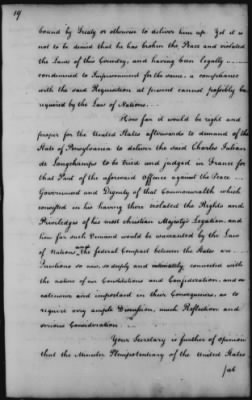 19
bound by Treaty or otherwise to deliver him up. Yet it is
not to be denied that he has broken the Peace and violated
the Laws of this Country, and having been legally
condemned to Imprisonment for the same, a compliance
with the said Requisition at present cannot possibly be
required by the Law of Nations.
How far it would be right and
proper for the United States afterwards to demand of the
State of Pennsylvania to deliver the said Charles Julian
de Longchamps to be tried and judged in France for
that Part of the aforesaid Offence against the Peace
Government and Dignity of that Commonwealth which
consisted in his having there violated the Rights and
Priviledges of his most christian Majesty's Legation, and
how far such Demand would be warranted by the Law
of Nations and the federal Compact between the States are
Questions so new, so deeply and intimately connected with
the nature of our Constitutions and Confederation, and so
extensive and important in their Consequences, as to
require very ample Discussion, much Reflection and
serious Consideration.
Your Secretary is further of opinion
that the Minister Plenipotentiary of the United States